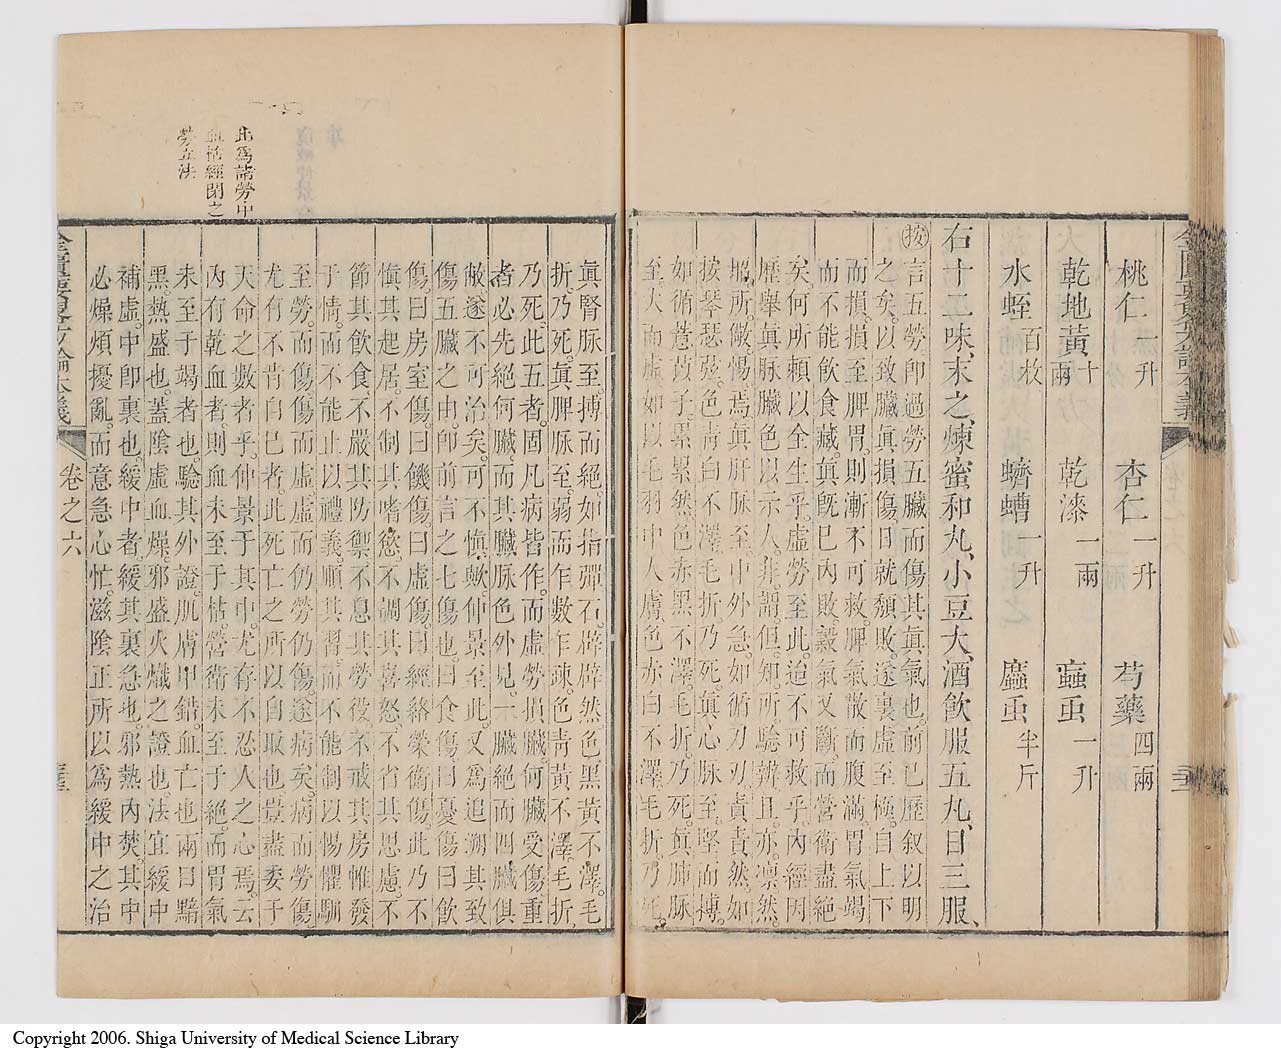 桃仁一升 杏仁一升 芍藥四兩
乾地黃十兩 乾漆一兩 蝱虫一升
水蛭百枚 蠐螬一升 䗪虫半斤
右十二味、末之、煉蜜和丸、小豆大、酒飲服五丸、日三服、
按言五勞卽過勞五臟而傷其眞氣也。前已歷叙以明
之矣。以致臟眞損傷、日就頹敗。遂裏虛至極。自上下
而損。損至脾胃。則漸不可救。脾氣散而腹滿、胃氣竭
而不能飲食。藏眞旣巳內敗。穀氣又斷。而營衛盡絕
矣。何所賴以全生乎。虛勞至此。迨不可救乎。內經因
歷舉眞脈臟色以示人。非謂但知所驗辨且亦凜然
知所儆惕焉。眞肝脈至。中外急。如循刀刃責責然。如
按琴瑟弦。色靑白不澤。毛折。乃死。眞心脈至。堅而搏。
如循薏苡子。累累然。色赤黑不澤。毛折。乃死。眞肺脈
至。大而虛。如以毛羽中人膚。色赤白不澤。毛折。乃死。
眞腎脈至。搏而絕。如指彈石。辟辟然。色黑黃不澤。毛
折。乃死。眞脾脈至。弱而乍數乍疎。色靑黃不澤。毛折。
乃死。此五者。固凡病皆作。而虛勞損臟。何臟受傷重
者。必先絕何臟。而其臟脈色外見。一臟絕而四臟俱
敝。遂不可治矣。可不愼歟。仲景至此。又爲追溯其致
傷五臟之由。卽前言之七傷也。曰食傷。曰憂傷。曰飲
傷。曰房室傷。曰饑傷。曰虛傷。曰經絡榮衛傷。此乃不
愼其起居。不制其嗜慾。不調其喜怒。不省其思慮。不
節其飲食。不嚴其防禦。不息其勞役。不戒其房帷。發
于情。而不能止以禮義。順其習。而不能制以惕懼。馴
至勞而傷。傷而虛。虛而仍勞仍傷。遂病矣。病而勞傷
尤有不肯自已者。此死亡之所以自取也。豈盡委于
天命之數者乎。仲景于其中。尤存不忍人之心焉。云
內有乾血者。則血未至于枯。營衛未至于絕。而胃氣
未至于竭者也。驗其外證。肌膚甲錯。血亡也。兩目黯
黑。熱盛也。蓋陰虛血燥。邪盛火熾之證也。法宜緩中
補虛。中卽裏也。緩中者。緩其裏急也。邪熱內焚。其中
必燥煩擾亂。而意急心忙。滋陰正所以爲緩中之治
卷之六
此爲諸勞中
血枯經閉之
勞立法
Copyright 2006. Shiga University of Medical Science Library